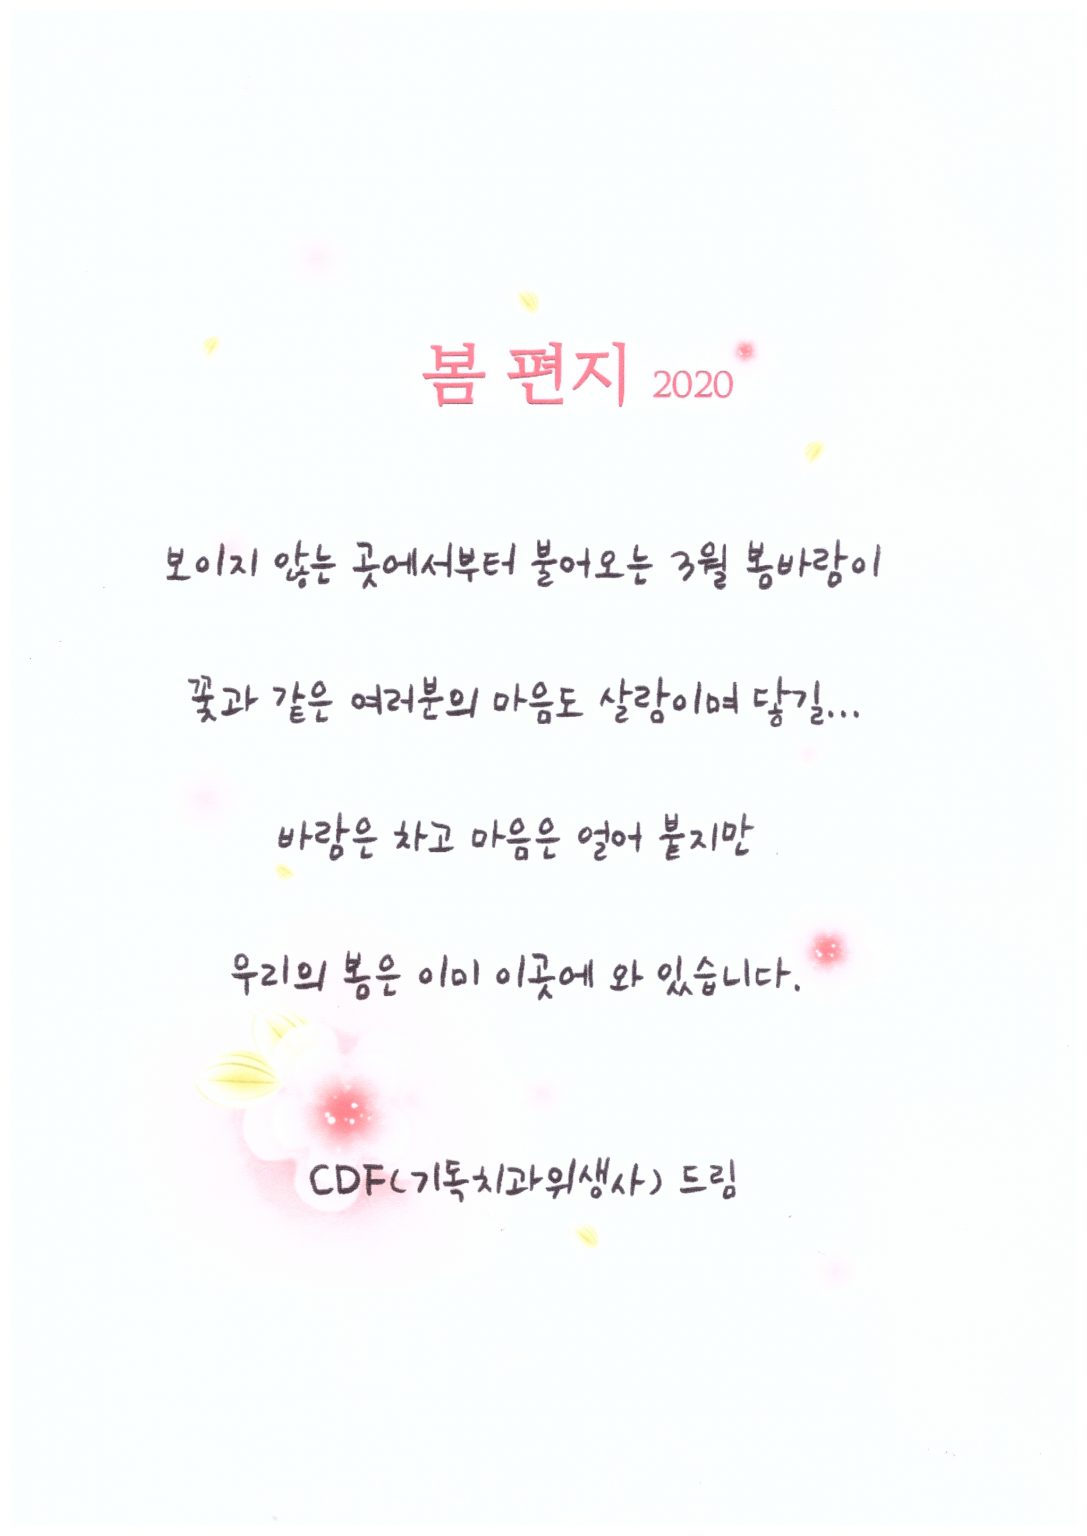 봄 편지 2020
보이지 않는 곳에서부터 불어오는 3월 봄바람이
꽃과 같은 여러분의 마음도 살랑이며 닿길...
바람은 차고 마음은 얼어 붙지만
우리의 봄은 이미 이곳에 와 있습니다.
CDF(기독치과위생사) 드림